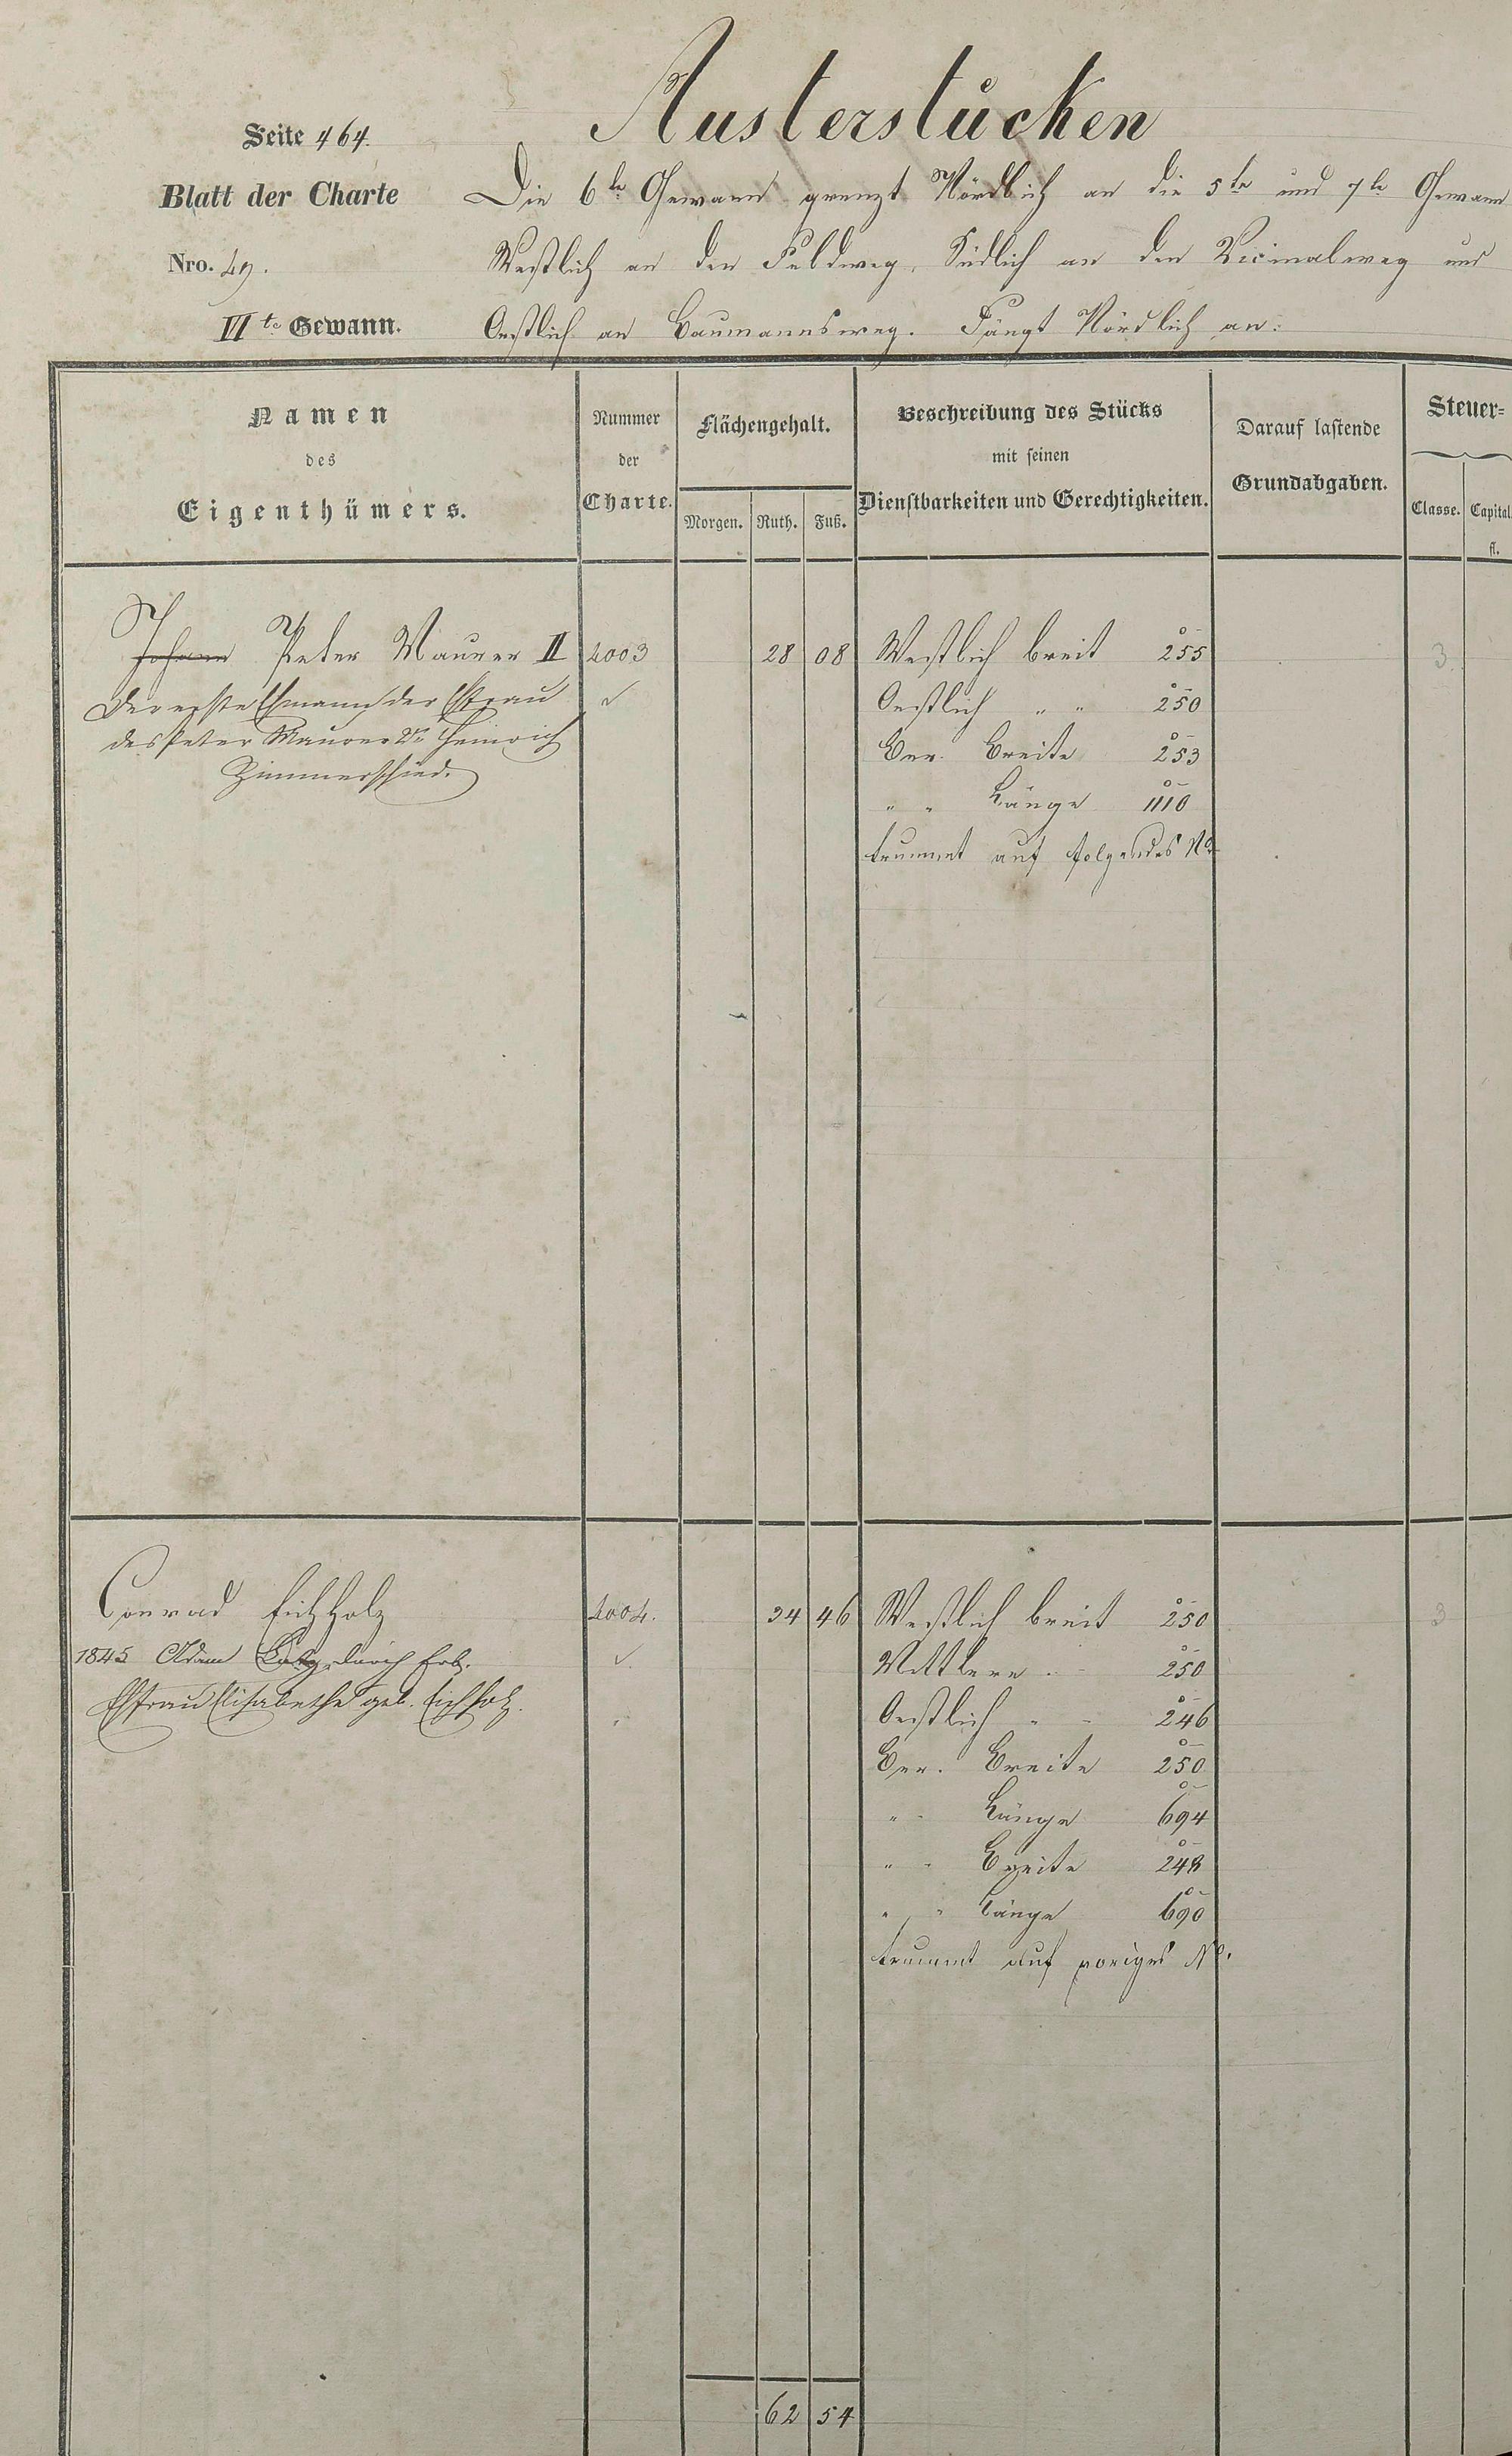 Austerstücken
Seite 464.
Blatt der Charte
Nro. 49.
VIte Gewann.
Die 6te Gewann grenzt Nördlich an die 5te und 7te Gewann
Westlich an den Feldweg, Südlich an den Vicinalweg und
Oestlich an Baumannsweg. Fängt Nördlich an.
Namen
des
Eigenthümers.
Nummer
der
Charte.
Flächengehalt.
Morgen. Ruth. Fuß.
Beschreibung des Stücks
mit seinen
Dienstbarkeiten und Gerechtigkeiten.
Darauf lastende
Grundabgaben.
Steuer=
Classe. Capital
fl.
Johann Peter Maurer II 4003 28 08 Westlich breit 255 3.
Der erste Ehmann der Ehfrau Oestlich " " 250
des Peter Maurer 2r Heinrich Ber. Breite 253
Zimmerschied.
" " Länge 1110
trummt auf folgendes No
Conrad Eichholz 4004. 34 46 Westlich breit 250 3
1845 Adam durch Erb. Mittlere " " 250
Ehfrau Elisabetha geb. Eichholz. Oestlich " " 246
Ber. Breite 250
" " Länge 694
" " Breite 248
" " Länge 690
trummt auf voriges No.
62 54